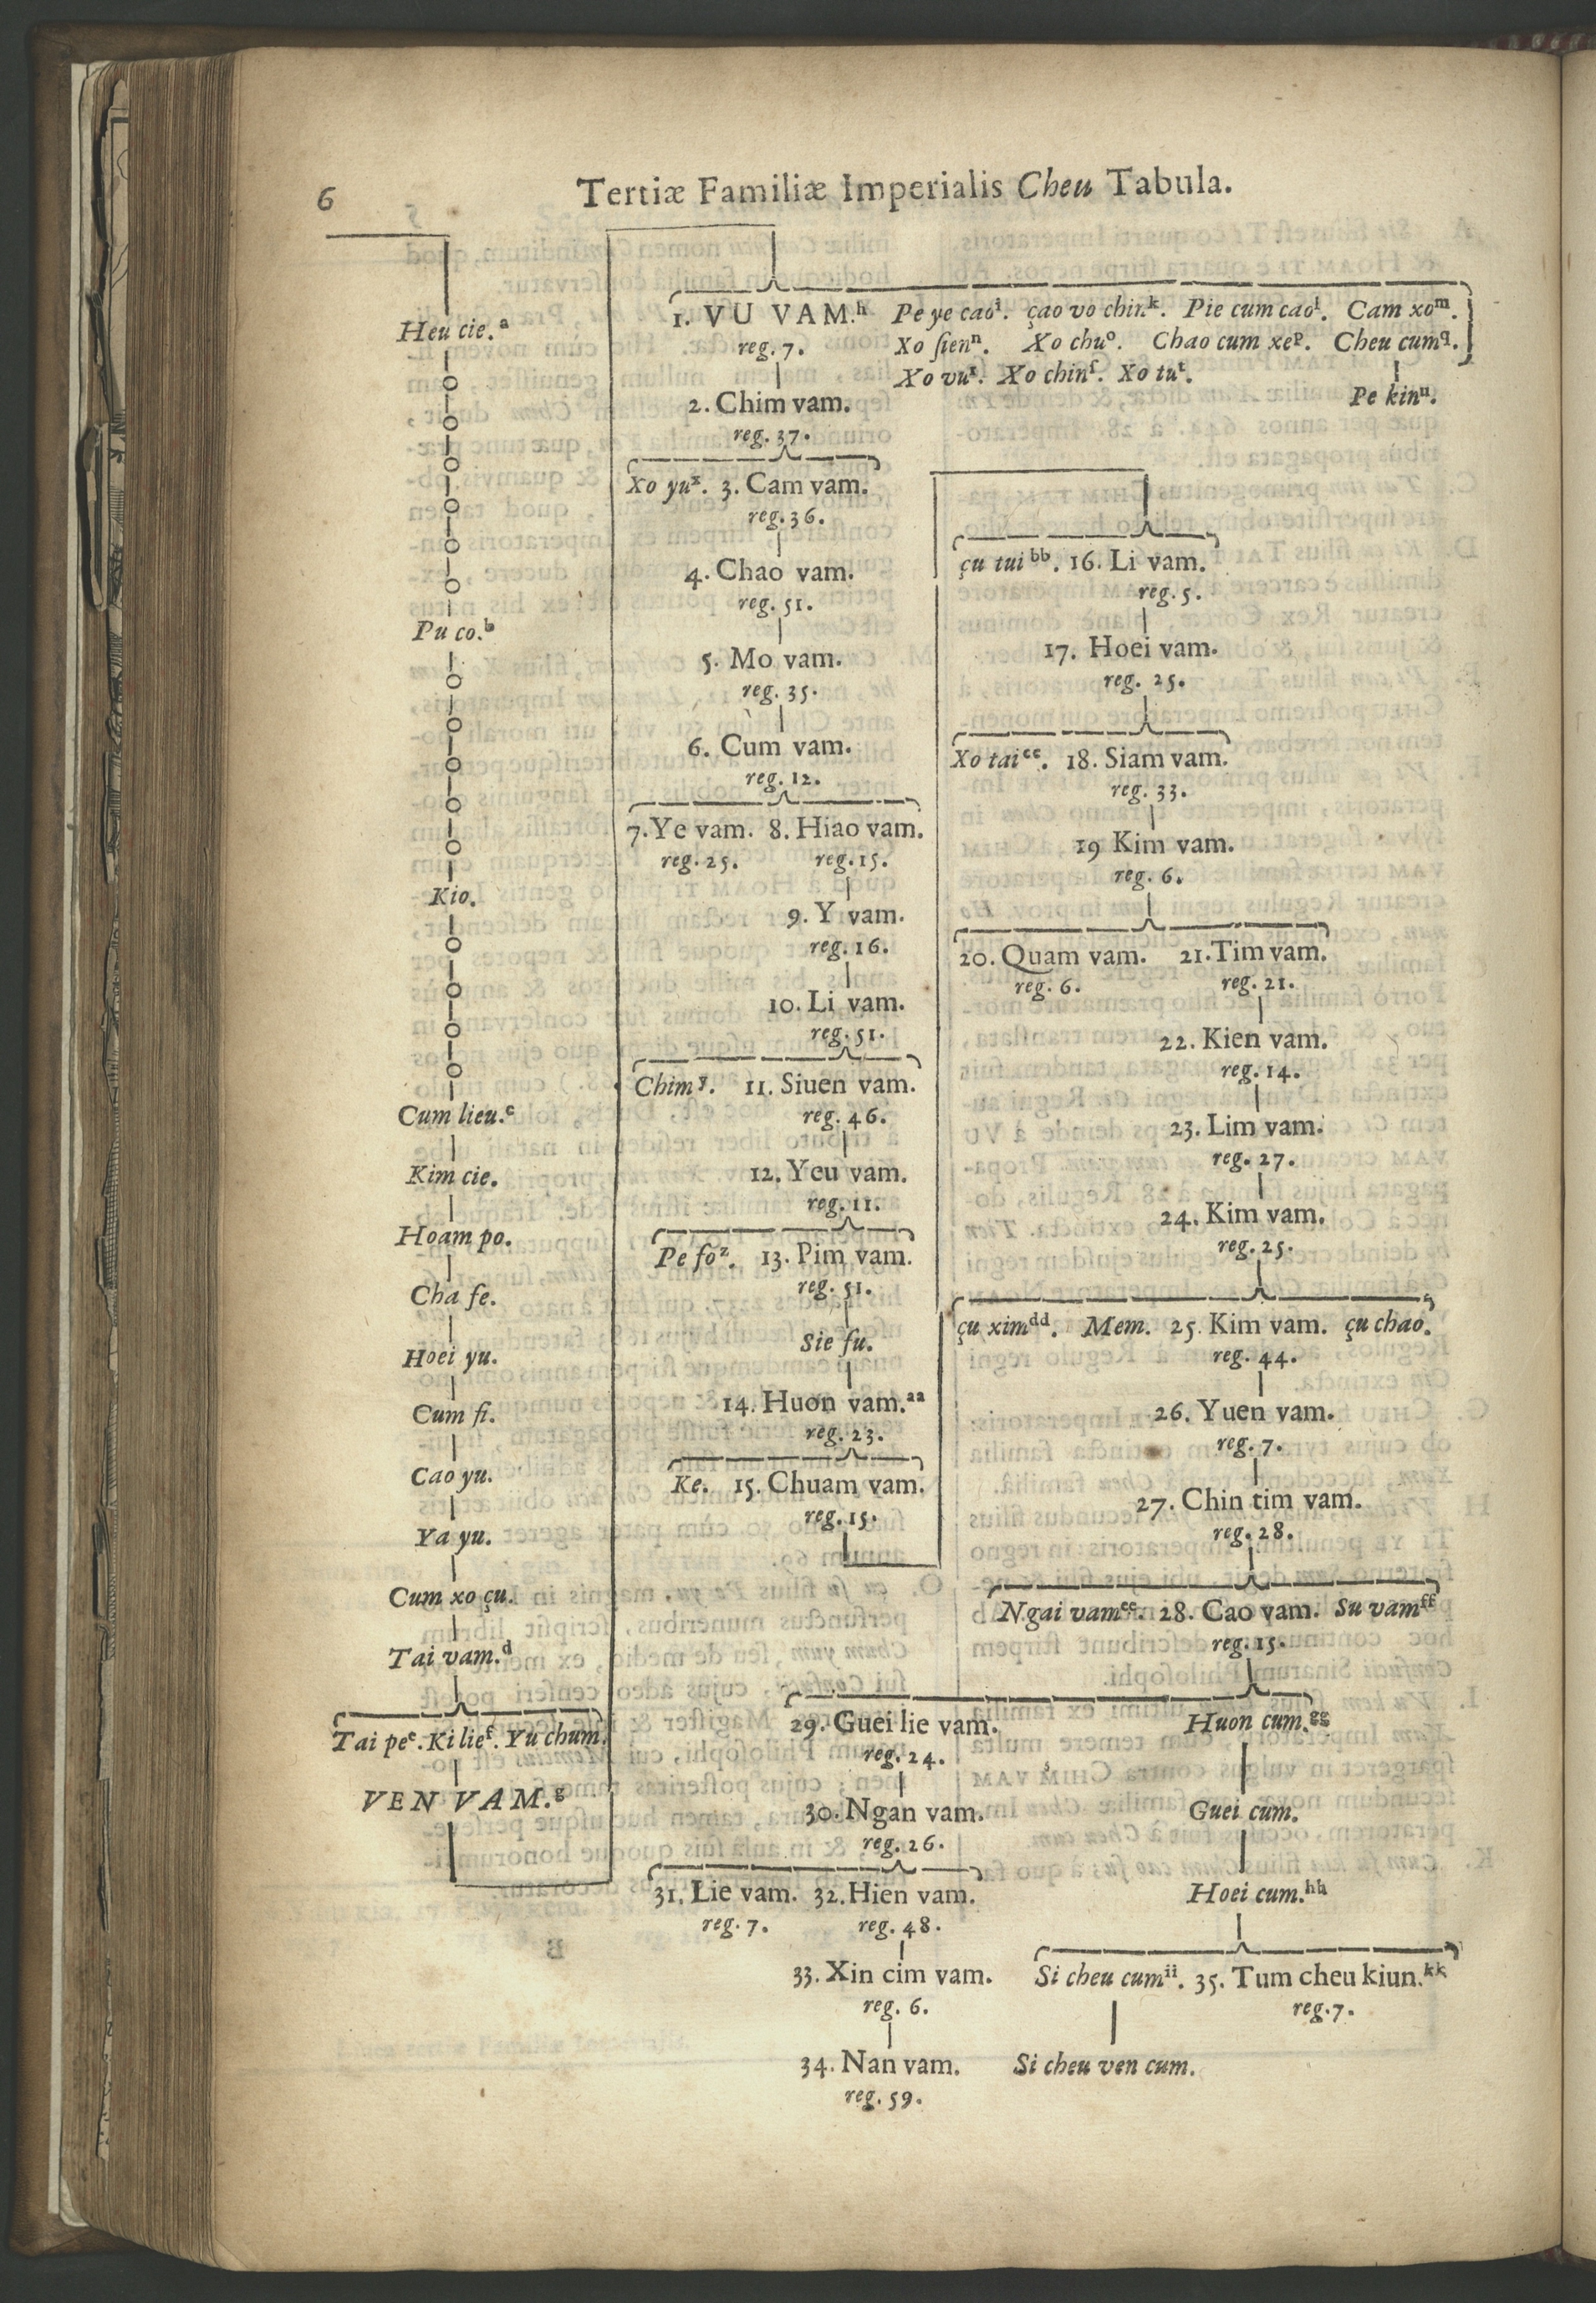 6
Tertiæ Familiæ Imperialis Cheu Tabula.
Heu cie.a
Pu co.b
Kio.
Cum lieu.c
Kim cie.
Hoam po.
Cha fe.
Hoei yu.
Cum fi.
Cao yu.
Ya yu.
Cum xo çu.
Tai vam.d
Tai pee. Ki lief. Yu chum.
VEN VAM.g
1. VU VAM.h Pe ye caoi. çao vo chin.k. Pie cum caol. Cam xom.
reg. 7. Xo ſienn. Xo chuo. Chao cum xep. Cheu cumq.
Xo vur. Xo chinſ. Xo tut.
Pe kinu.
2. Chim vam.
reg. 37.
Xo yux. 3. Cam vam.
reg. 36.
4. Chao vam.
reg. 51.
5. Mo vam.
reg. 35.
6. Cum vam.
reg. 12.
7. Ye vam. 8. Hiao vam.
reg. 25. reg. 15.
9. Y vam.
reg. 16.
10. Li vam.
reg. 51.
Chimy. 11. Siuen vam.
reg. 46.
12. Yeu vam.
reg. 11.
Pe foz. 13. Pim vam.
reg. 51.
Sie fu.
14. Huon vam.aa
reg. 23.
Ke. 15. Chuam vam.
reg. 15.
çu tui bb. 16. Li vam.
reg. 5.
17. Hoei vam.
reg. 25.
Xo tai cc. 18. Siam vam.
reg. 33.
19 Kim vam.
reg. 6.
20. Quam vam. 21. Tim vam.
reg. 6. reg. 21.
22. Kien vam.
reg. 14.
23. Lim vam.
reg. 27.
24. Kim vam.
reg. 25.
çu ximdd. Mem. 25. Kim vam. çu chao.
reg. 44.
26. Yuen vam.
reg. 7.
27. Chin tim vam.
reg. 28.
Ngai vamee. 28. Cao vam. Su vamff
reg. 15.
29. Guei lie vam. Huon cum.gg
reg. 24.
30. Ngan vam. Guei cum.
reg. 26.
31. Lie vam. 32. Hien vam. Hoei cum.hh
reg. 7. reg. 48.
33. Xin cim vam. Si cheu cumii. 35. Tum cheu kiun.kk
reg. 6. reg. 7.
34. Nan vam. Si cheu ven cum.
reg. 59.